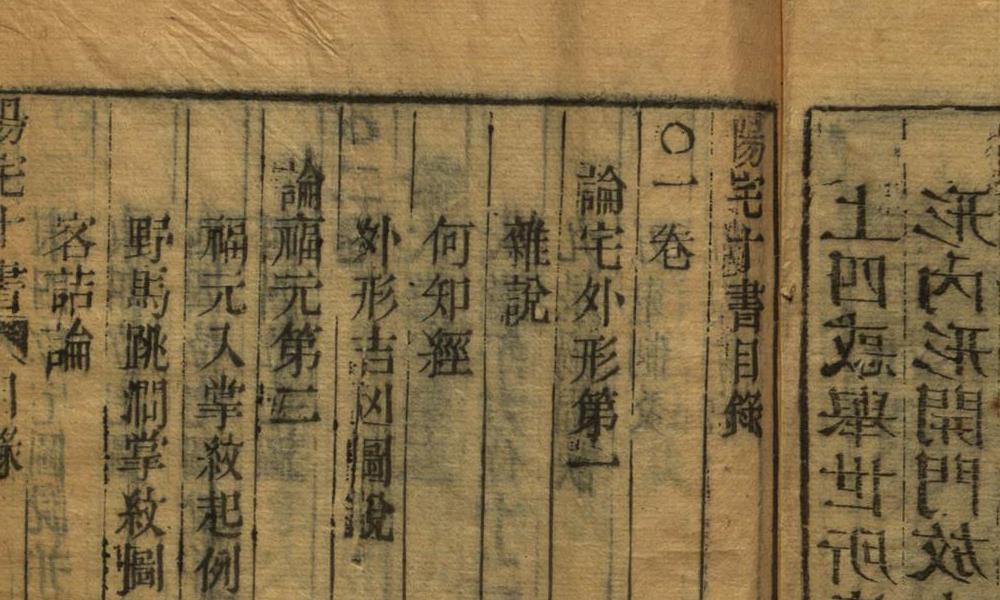 陽宅十書目錄
〇一卷
論宅外形第一
雜說
何知經
外形吉凶圖說
論福元第二
福元入掌紋起例
野馬跳澗掌紋圖
客詰論
陽宅十書 目錄
形內形開門放
上四惑舉世所